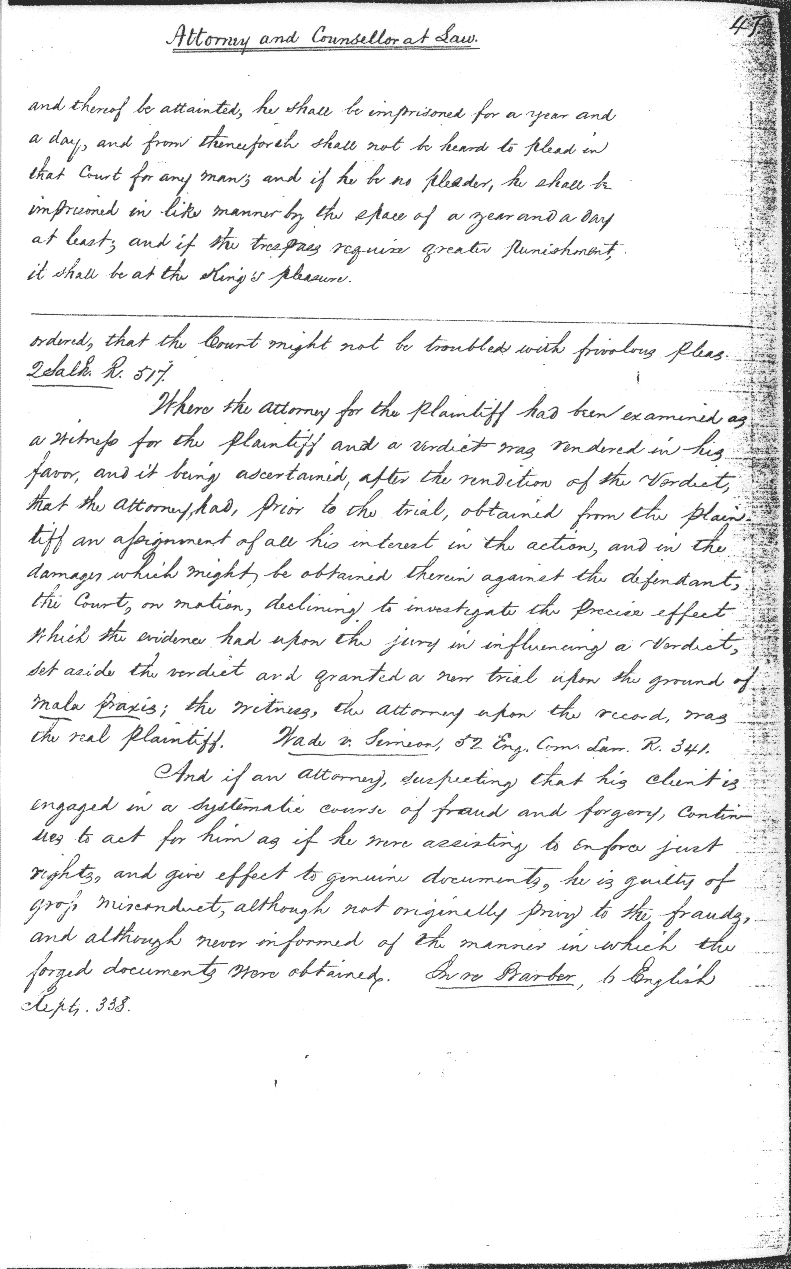 45.
Attorney and Counsellor at Law.
and thereof be attainted, he shall be imprisoned for a year and
a day, and from thenceforth shall not be heard to plead in
that Court for any man; and if he be no pleader, he shall be
imprisoned in like manner by the space of a year and a day
at least; and if the trespass require greater punishment,
it shall be at the King's pleasure.
ordered, that the Court might not be troubled with frivolous pleas.
2 Salk. R. 517.
Where the Attorney for the Plaintiff had been examined as
a witness for the Plaintiff and a verdict was rendered in his
favor, and it being ascertained, after the rendition of the Verdict,
that the Attorney, had, prior to the trial, obtained from the Plain-
tiff an assignment of all his interest in the action, and in the
damages which might, be obtained therein against the defendant,
the Court, on motion, declining to investigate the precise effect
which the evidence had upon the jury in influencing a Verdict,
set aside the verdict and granted a new trial upon the ground of
mala praxis; the witness, the Attorney upon the record, was
the real Plaintiff. Wade v. Simeon, 52 Eng. Com. Law. R. 341.
And if an Attorney, suspecting that his client is
engaged in a systematic course of fraud and forgery, contin-
ues to act for him as if he were assisting to enforce just
rights, and give effect to genuine documents, he is guilty of
gross misconduct, although not originally privy to the frauds,
and although never informed of the manner in which the
forged documents were obtained. In re Barber, 6 English
Repts. 338.